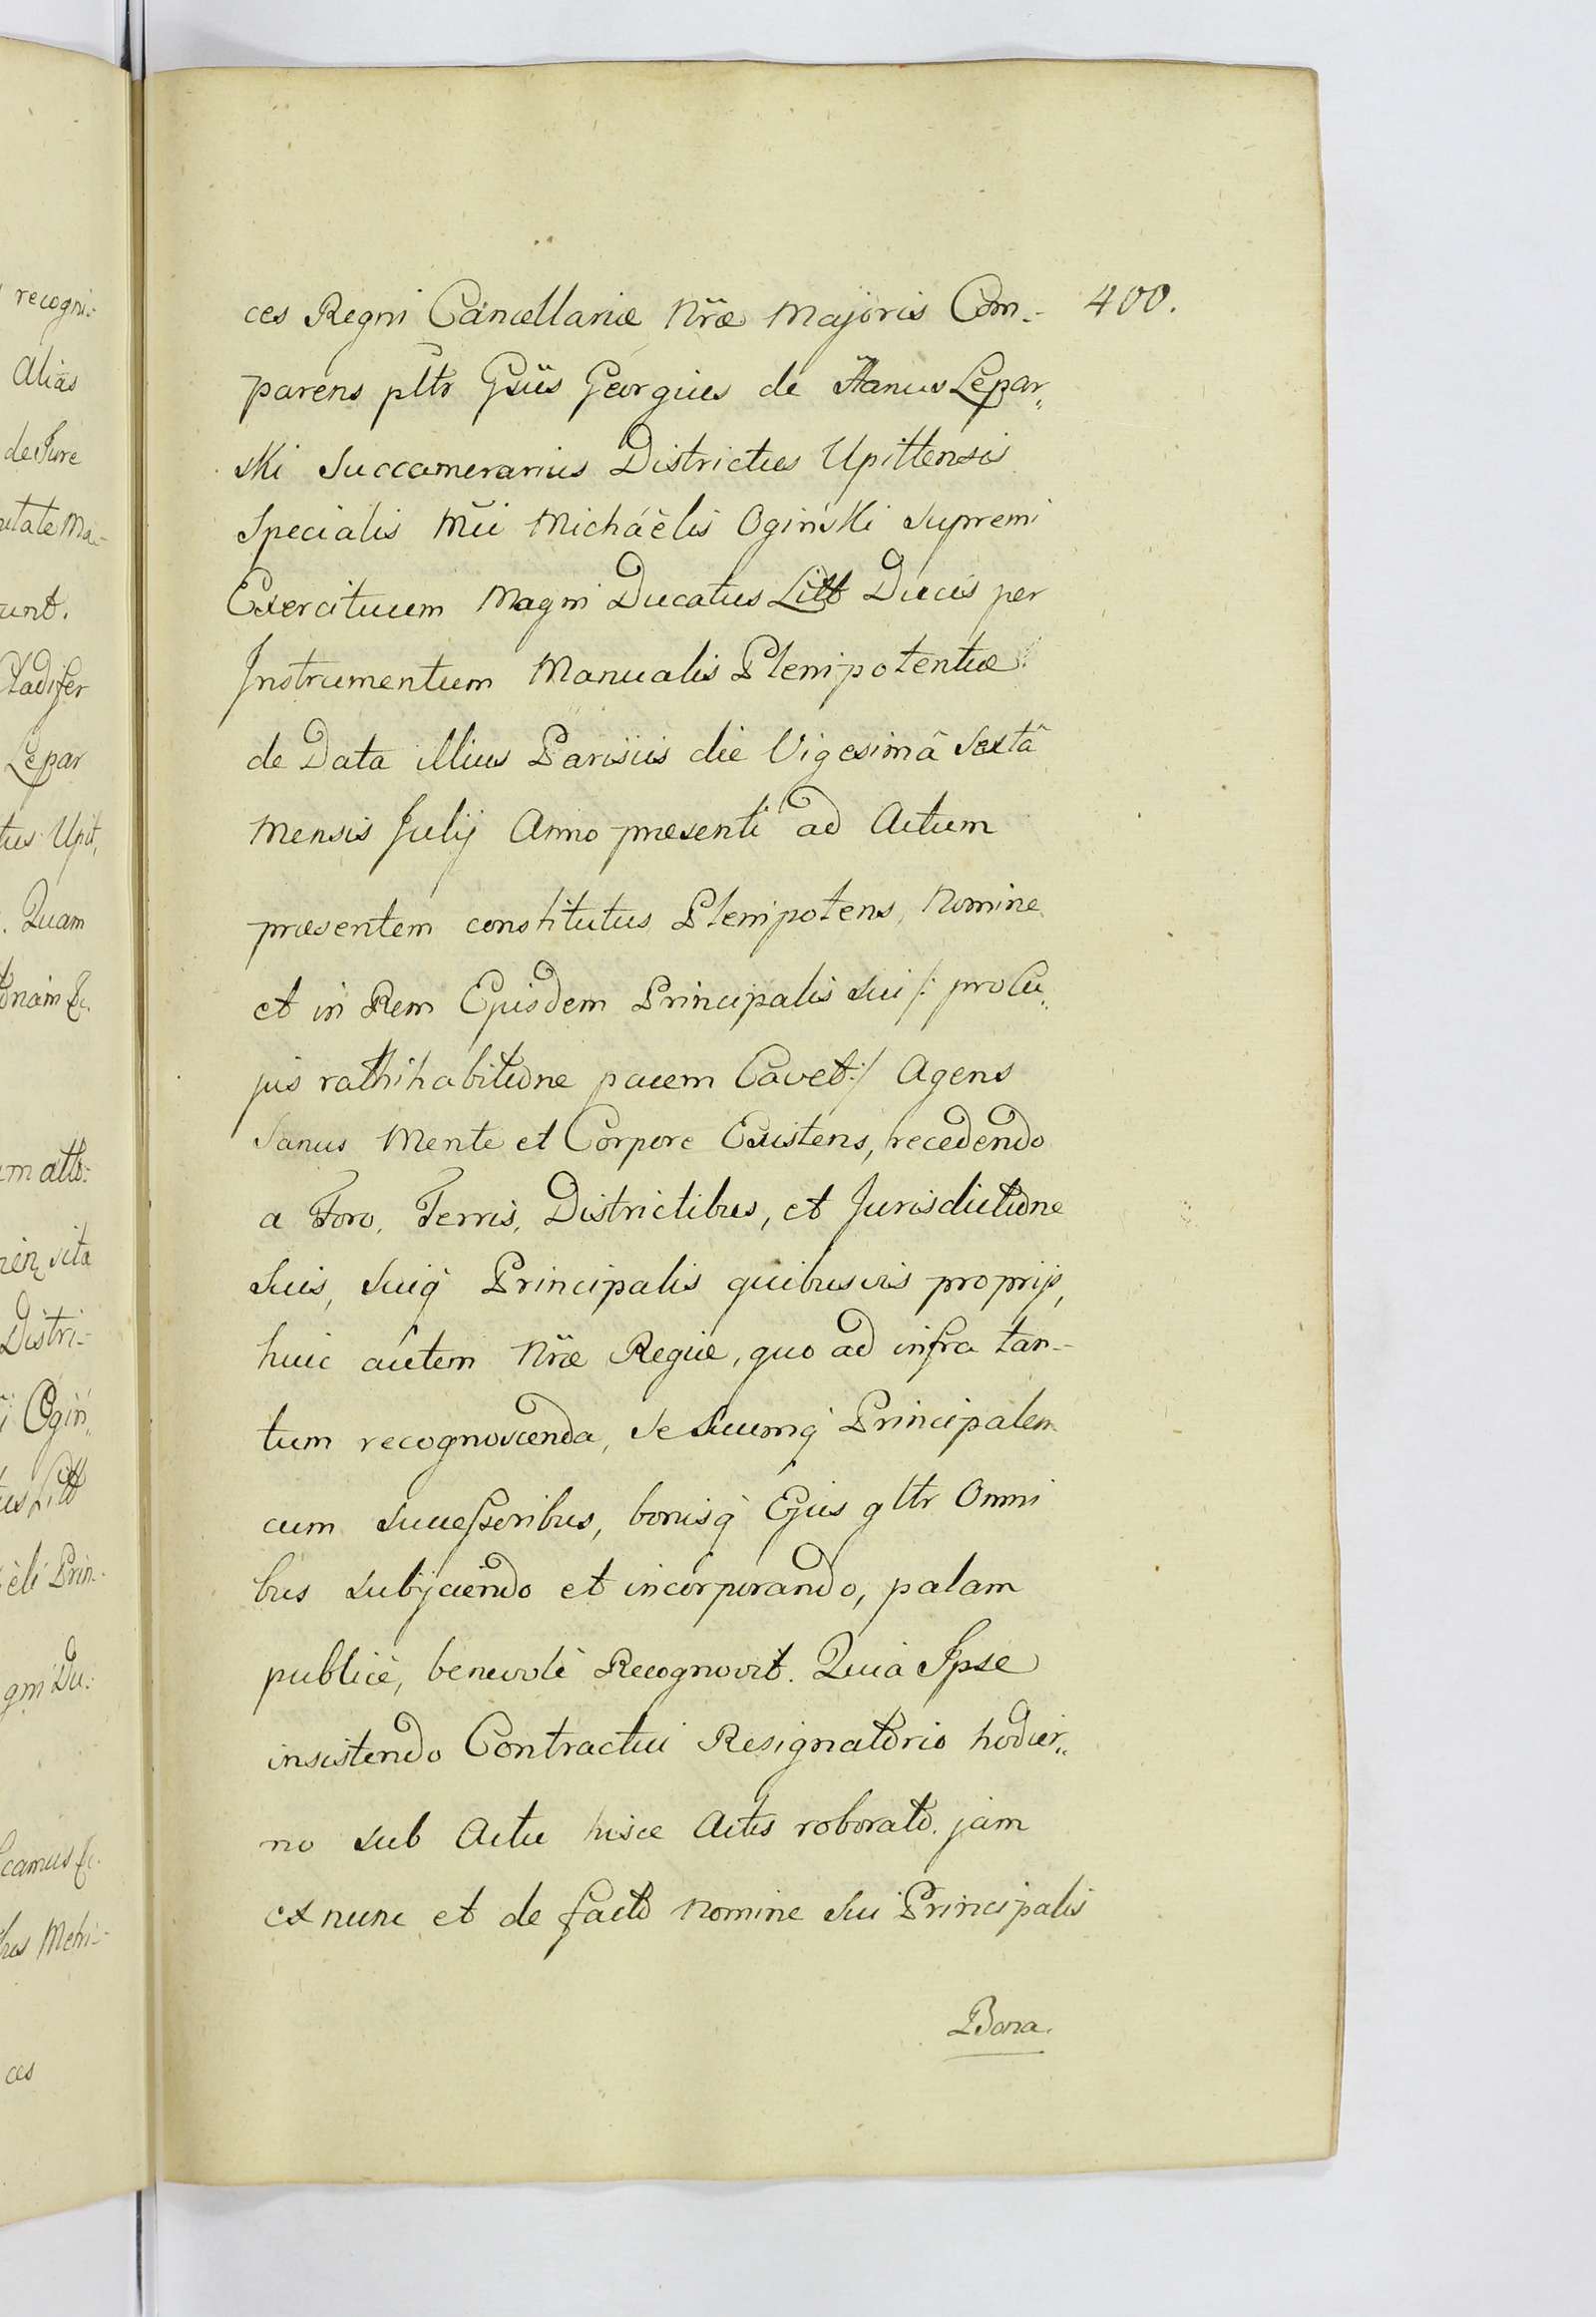 ces Regni Cancellariæ Nr̃æ Majoris Com-
400.
parens pltr Gsũs Georgius de Hanus Lepar„
ski Succamerarius Districtus Upittensis
Specialis Mũi Michäelis Ogiński Supremi
Exercituum Magni Ducatus Litt Ducis per
Instrumentum Manualis Plenipotentiæ
de Data illius Parisiis die Vigesimâ Sextâ
Mensis Julij Anno præsenti ad Actum
præsentem constitutus Plenipotens, Nomine
et in Rem Ejusdem Principalis sui /: pro Cu„
jus rathihabitione pacem Cavet :/ Agens
Sanus Mente et Corpore Existens, recedendo
a Foro, Terris, Districtibus, et Jurisdictione
Suis, Suiq̀ Principalis quibusvis proprijs,
huic autem Nr̃æ Regiæ, quo ad infra tan-
tum recognoscenda, se Suumq̀ Principalem
cum Successoribus, bonisq̀ Ejus gltr Omni
bus subijciendo et incorporando, palam
publicè, benevolè Recognovit. Quia Ipse
insistendo Contractui Resignatorio hodier„
no sub Actu hisce Actis roborato. jam
ex nunc et de facto Nomine sui Principalis
Bona.
recogni-
alias
de Jure
unt.
Gladifer
Lepar
tus Upit„
. Quam
m atto:
sita
Distri-
Ogiń„
us Litt
èli Prin-
gni Du:
camus &c.
hus Metri-
ces